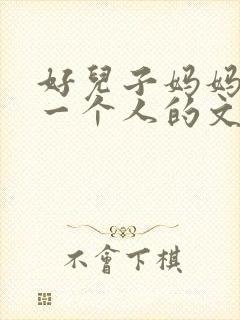 好兒子妈妈
一个人的文
不會下棋